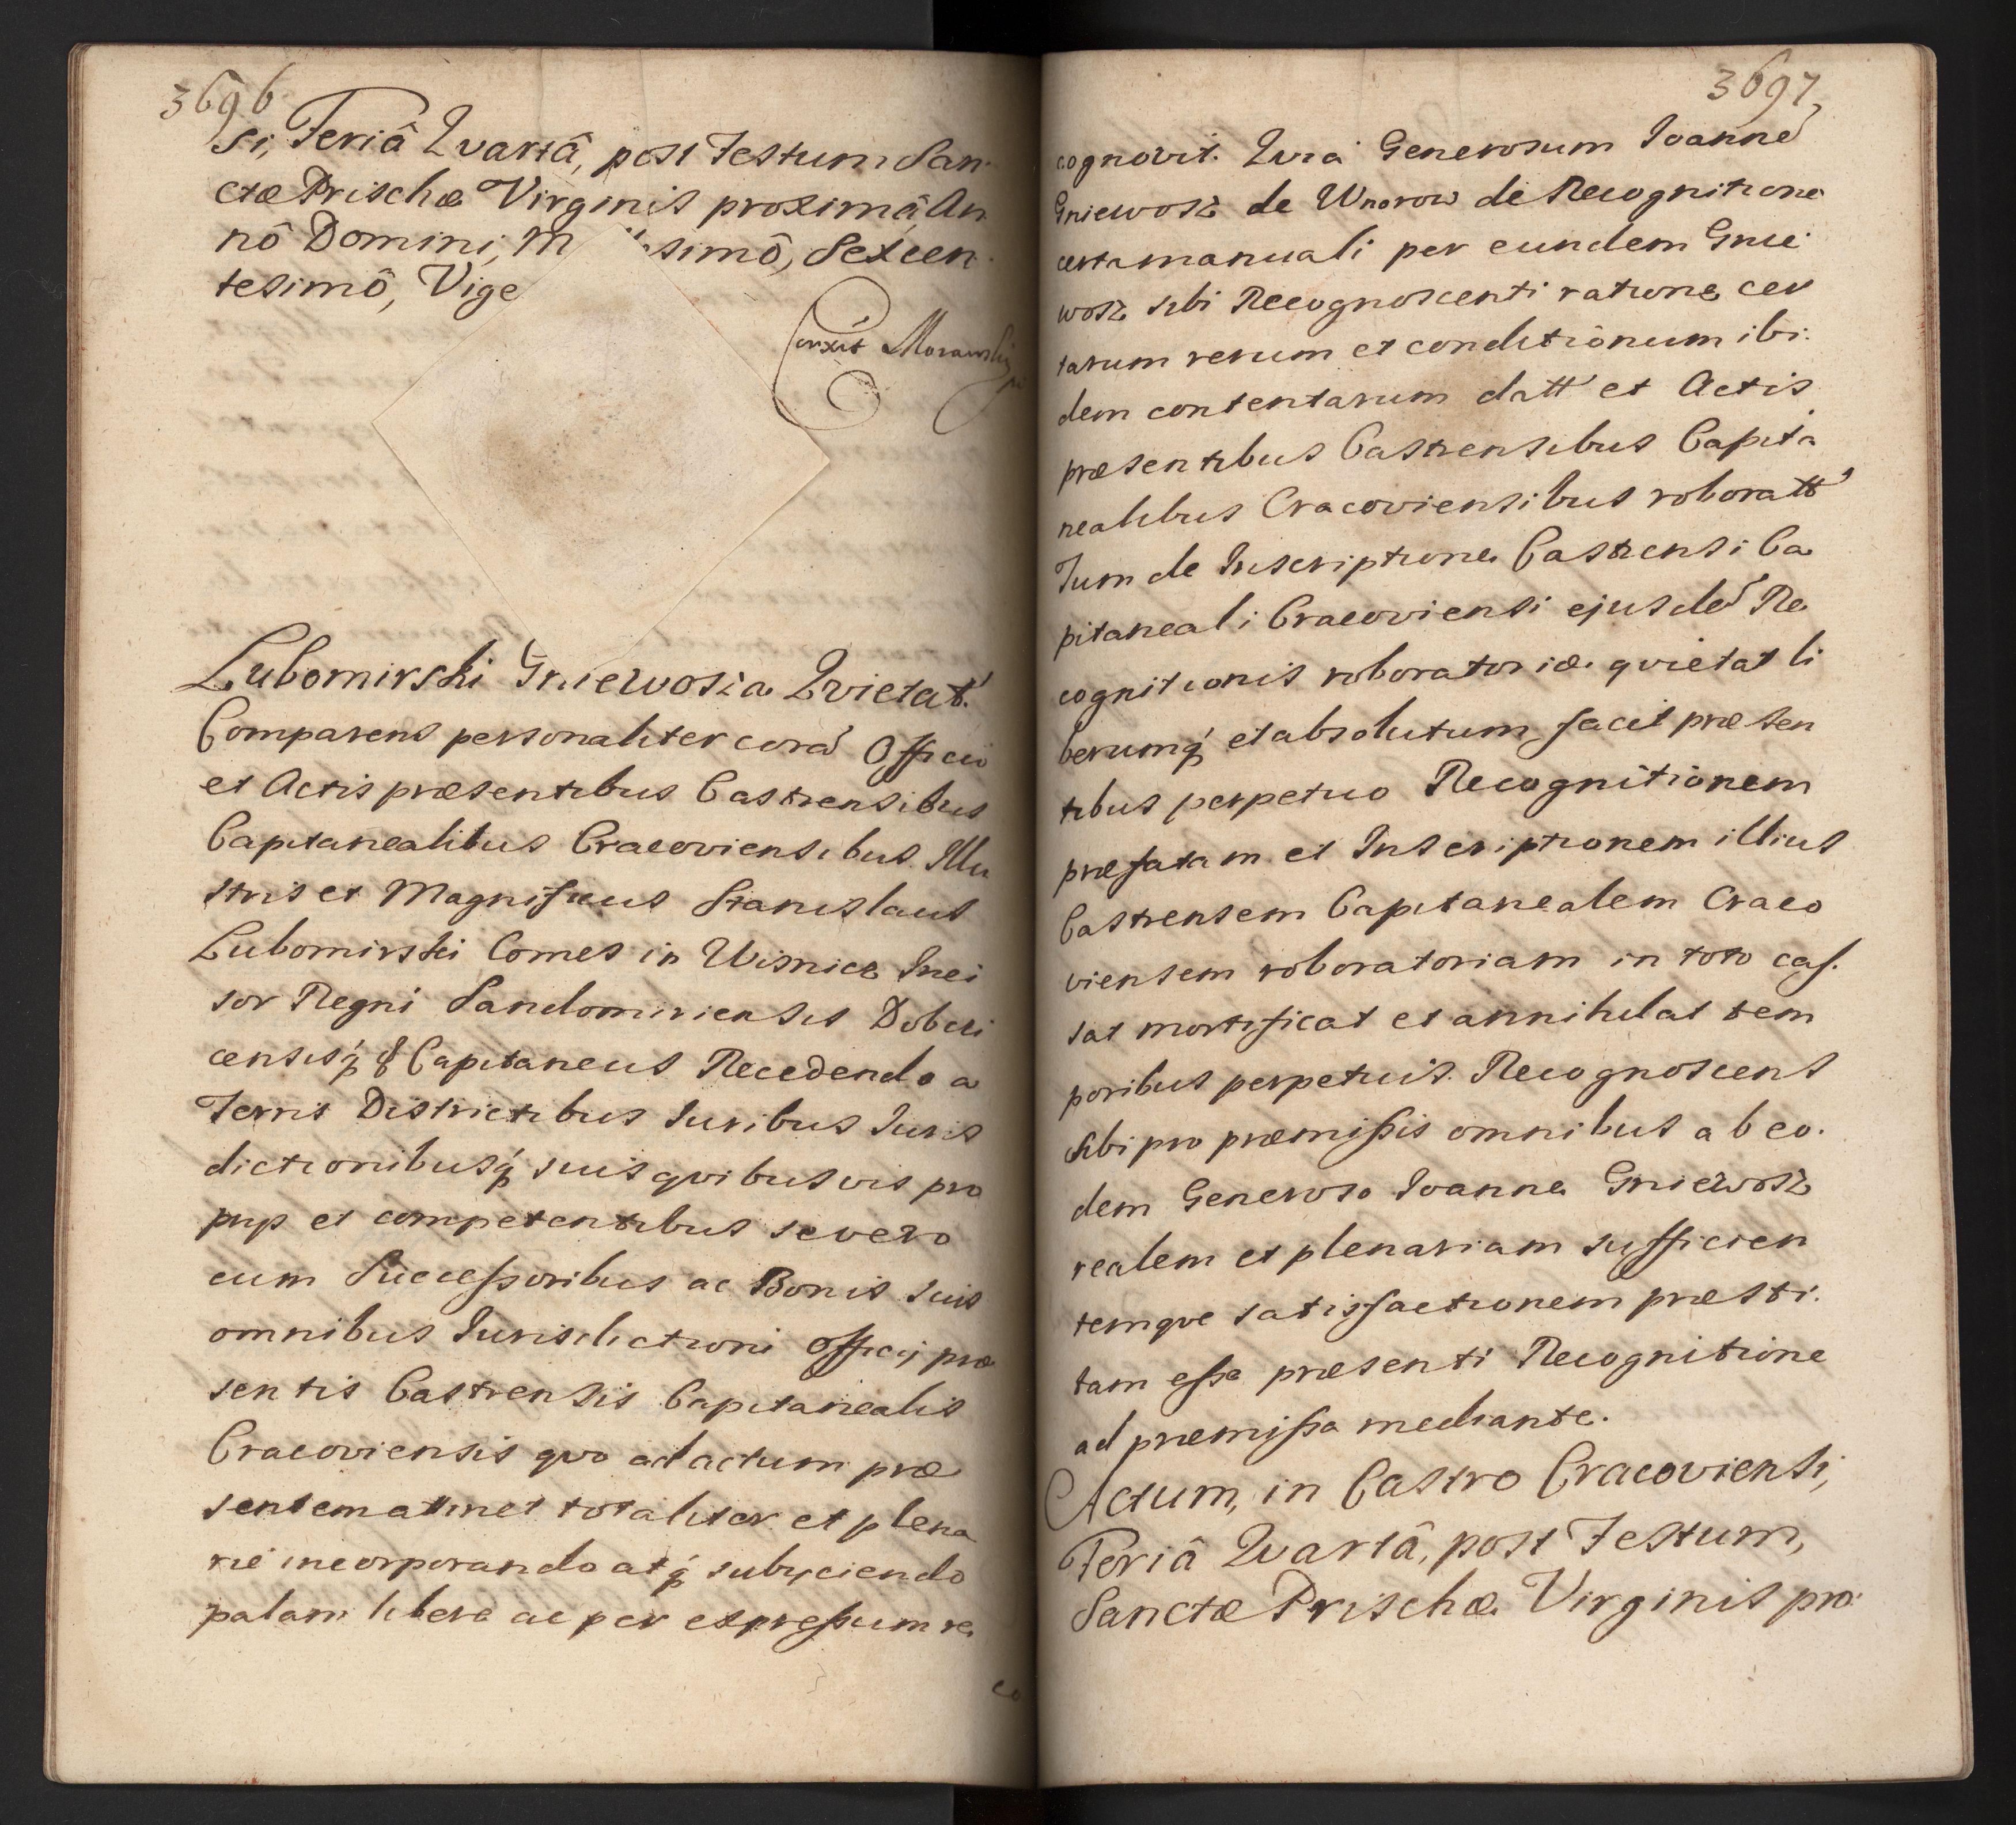 3696
si, Feriâ Qvartâ, post Festum San-
ctæ Prischæ Virginis proximâ, An
nô Domini, M simô, Sexcen-
tesimô, Vige
Corrxit Morawski
Lubomirski Gniewosza Qvietat.
Comparens personaliter corã Officio
et Actis præsentibus Castrensibus
Capitanealibus Cracoviensibus Illu
stris et Magnificus Stanislaus
Lubomirski Comes in Wisnicz Inci
sor Regni Sandomiriensis Dobcri
censisq́ & Capitaneus Recedendo a
Terris Districtibus Iuribus Iuris
dictionibusq́ suis qvibusvis pro
prijs et competentibus se vero
cum Successoribus ac Bonis suis
omnibus Iurisdictioni Officij præ
sentis Castrensis Capitanealis
Cracoviensis qvo ad actum præ
sentem attinet totaliter et plena
rie incorporando atq́ subijciendo
palam libere ac per expressum re
co
3697
cognovit. Qvia Generosum Ioannẽ
Gniewosz de Wnorow de Recognitione
certa manuali per eundem Gnie
wosz sibi Recognoscenti ratione cer
tarum rerum et conditionum ibi-
dem contentarum datt' et Actis
præsentibus Castrensibus Capita
nealibus Cracoviensibus roboratt'
Tum de Inscriptione Castrensi Ca
pitaneali Cracoviensi ejusdẽ Re
cognitionis roboratoriæ qvietat li
berumq́ et absolutum facit præsen
tibus perpetuo Recognitionem
præfatam et Inscriptionem illius
Castrensem Capitanealem Craco
viensem roboratoriam in toto cas-
sat mortificat et annihilat tem
poribus perpetuis. Recognoscens
sibi pro præmissis omnibus ab eo-
dem Generoso Ioanne Gniewosz
realem et plenariam sufficien
temqve satisfactionem præsti-
tam esse præsenti Recognitione
ad præmissa mediante.
Actum, in Castro Cracoviensi,
Feriâ Qvartâ, post Festum,
Sanctæ Prischæ Virginis pro-